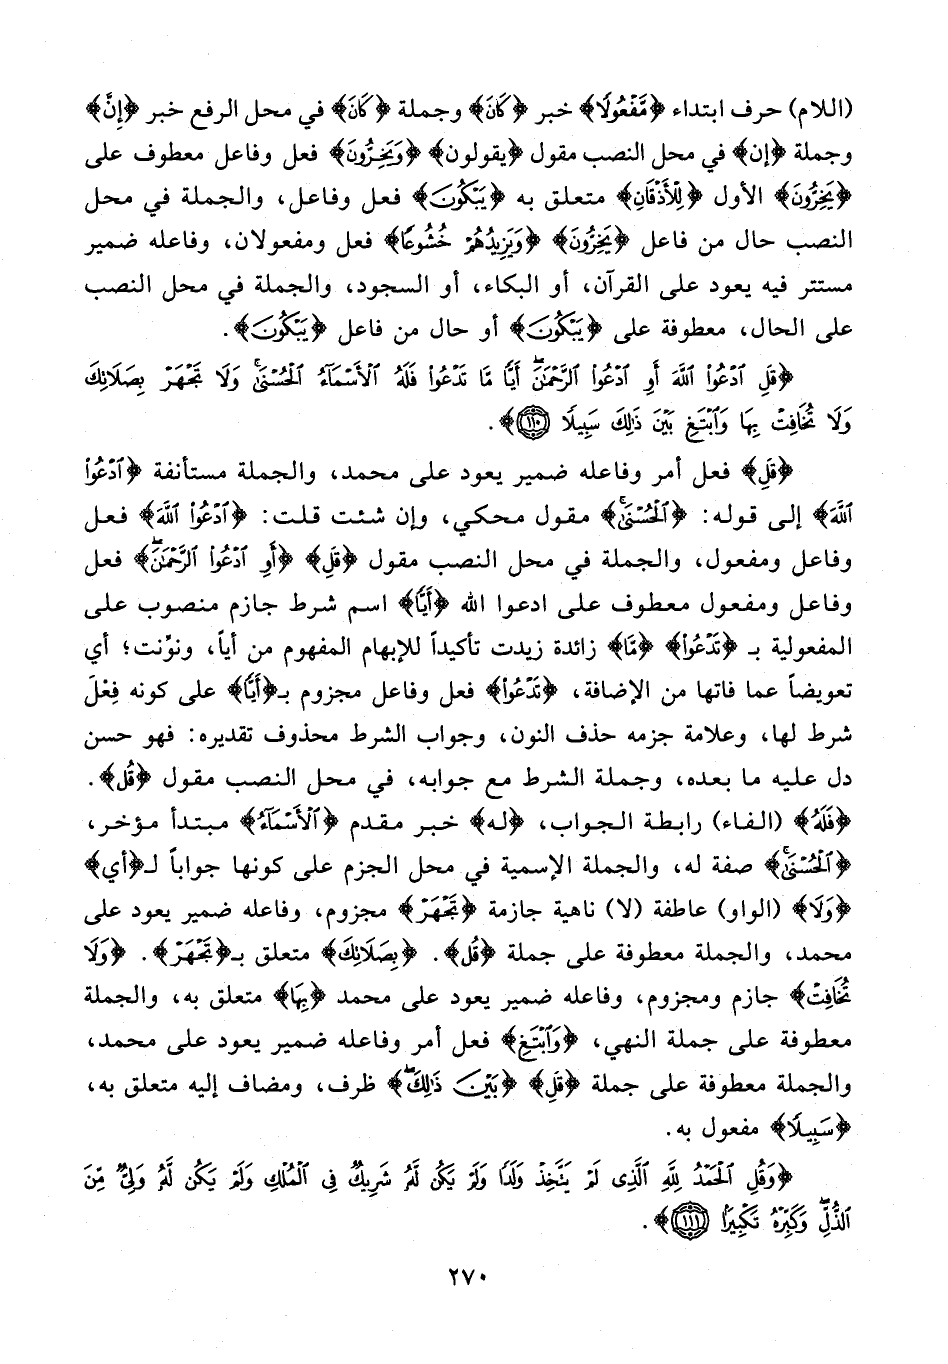 (اللام) حرف ابتداء ﴿مَّفْعُولًا﴾ خبر ﴿كَانَ﴾ وجملة ﴿كَانَ﴾ في محل الرفع خبر ﴿إِنَّ﴾
وجملة ﴿إن﴾ في محل النصب مقول ﴿يقولون﴾ ﴿وَيَخِرُّونَ﴾ فعل وفاعل معطوف على
﴿يَخِرُّونَ﴾ الأول ﴿لِلْأَذْقَانِ﴾ متعلق به ﴿يَبْكُونَ﴾ فعل وفاعل، والجملة في محل
النصب حال من فاعل ﴿يَخِرُّونَ﴾ ﴿وَيَزِيدُهُمْ خُشُوعًا﴾ فعل ومفعولان، وفاعله ضمير
مستتر فيه يعود على القرآن، أو البكاء، أو السجود، والجملة في محل النصب
على الحال، معطوفة على ﴿يَبْكُونَ﴾ أو حال من فاعل ﴿يَبْكُونَ﴾.
﴿قُلِ ٱدْعُوا۟ ٱللَّهَ أَوِ ٱدْعُوا۟ ٱلرَّحْمَٰنَ ۖ أَيًّا مَّا تَدْعُوا۟ فَلَهُ ٱلْأَسْمَآءُ ٱلْحُسْنَىٰ ۚ وَلَا تَجْهَرْ بِصَلَاتِكَ
وَلَا تُخَافِتْ بِهَا وَٱبْتَغِ بَيْنَ ذَٰلِكَ سَبِيلًا ١١٠﴾.
﴿قُلِ﴾ فعل أمر وفاعله ضمير يعود على محمد، والجملة مستأنفة ﴿ٱدْعُوا۟
ٱللَّهَ﴾ إلى قوله: ﴿ٱلْحُسْنَىٰ ۚ﴾ مقول محكي، وإن شئت قلت: ﴿ٱدْعُوا۟ ٱللَّهَ﴾ فعل
وفاعل ومفعول، والجملة في محل النصب مقول ﴿قُلِ﴾ ﴿أَوِ ٱدْعُوا۟ ٱلرَّحْمَٰنَ ۖ﴾ فعل
وفاعل ومفعول معطوف على ادعوا الله ﴿أَيًّا﴾ اسم شرط جازم منصوب على
المفعولية بـ ﴿تَدْعُوا۟﴾ ﴿مَّا﴾ زائدة زيدت تأكيداً للإبهام المفهوم من أياً، ونوِّنت؛ أي
تعويضاً عما فاتها من الإضافة، ﴿تَدْعُوا۟﴾ فعل وفاعل مجزوم بـ﴿أَيًّا﴾ على كونه فِعْلَ
شرط لها، وعلامة جزمه حذف النون، وجواب الشرط محذوف تقديره: فهو حسن
دل عليه ما بعده، وجملة الشرط مع جوابه، في محل النصب مقول ﴿قُل﴾.
﴿فَلَهُ﴾ (الفاء) رابطة الجواب، ﴿له﴾ خبر مقدم ﴿ٱلْأَسْمَآءُ﴾ مبتدأ مؤخر،
﴿ٱلْحُسْنَىٰ ۚ﴾ صفة له، والجملة الإسمية في محل الجزم على كونها جواباً لـ﴿أي﴾
﴿وَلَا﴾ (الواو) عاطفة (لا) ناهية جازمة ﴿تَجْهَرْ﴾ مجزوم، وفاعله ضمير يعود على
محمد، والجملة معطوفة على جملة ﴿قُل﴾. ﴿بِصَلَاتِكَ﴾ متعلق بـ﴿تَجْهَرْ﴾. ﴿وَلَا
تُخَافِتْ﴾ جازم ومجزوم، وفاعله ضمير يعود على محمد ﴿بِهَا﴾ متعلق به، والجملة
معطوفة على جملة النهي، ﴿وَٱبْتَغِ﴾ فعل أمر وفاعله ضمير يعود على محمد،
والجملة معطوفة على جملة ﴿قُلِ﴾ ﴿بَيْنَ ذَٰلِكَ ۖ﴾ ظرف، ومضاف إليه متعلق به،
﴿سَبِيلًا﴾ مفعول به.
﴿وَقُلِ ٱلْحَمْدُ لِلَّهِ ٱلَّذِى لَمْ يَتَّخِذْ وَلَدًا وَلَمْ يَكُن لَّهُۥ شَرِيكٌ فِى ٱلْمُلْكِ وَلَمْ يَكُن لَّهُۥ وَلِىٌّ مِّنَ
ٱلذُّلِّ ۖ وَكَبِّرْهُ تَكْبِيرًۢا ١١١﴾.
٢٧٠